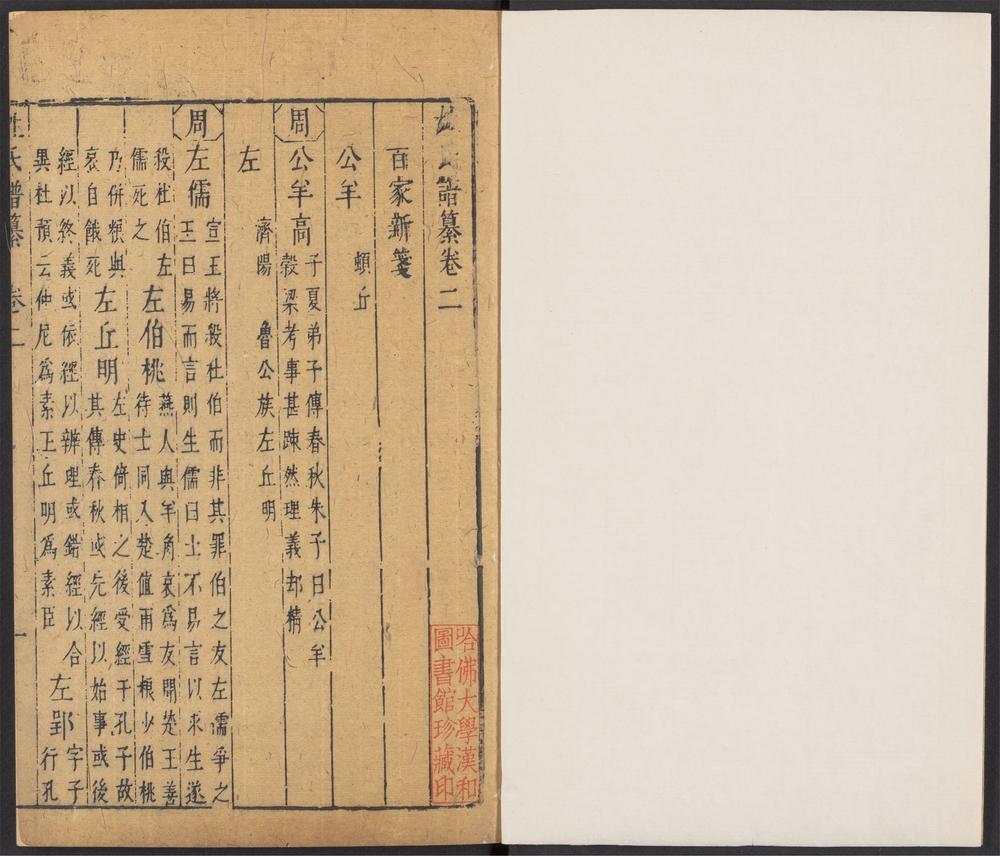 姓氏譜纂卷二
百家新箋
公羊
頓丘
周 公羊高 子夏弟子傳春秋朱子曰公羊
穀梁考事甚踈然理義却精
左
濟陽 魯公族左丘明
周 左儒 宣王將殺杜伯而非其罪伯之友左儒爭之
王曰易而言則生儒曰士不易言以求生遂
殺杜伯左
儒死之 左伯桃 燕人與羊角哀爲友聞楚王善
待士同入楚值雨雪粮少伯桃
乃併粮與
哀自餓死 左丘明 左史倚相之後受經于孔子故
其傳春秋或先經以始事或後
經以終義或依經以辨理或錯經以合
異杜預云仲尼爲素王丘明爲素臣 左郢 字子
行孔
姓氏譜纂 卷二 一
哈佛大學漢和
圖書館珍藏印